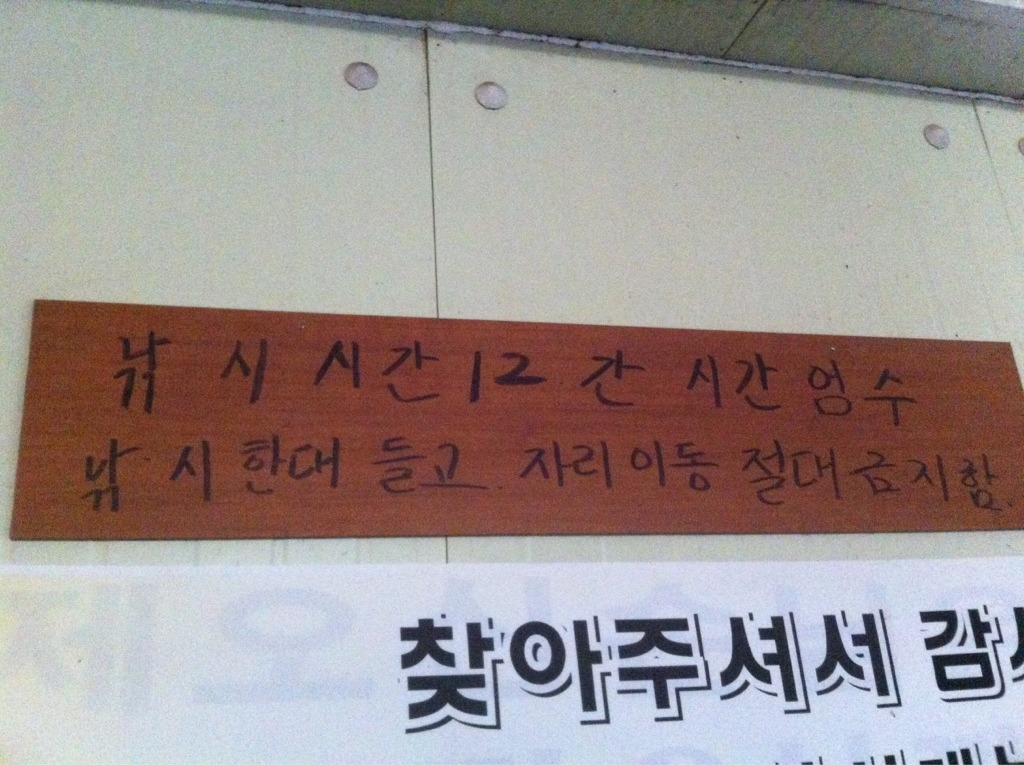 낚시 시간 12 간 시간 엄수
낚시 한대 들고. 자리 이동 절대 금지함.
찾아주셔서 감